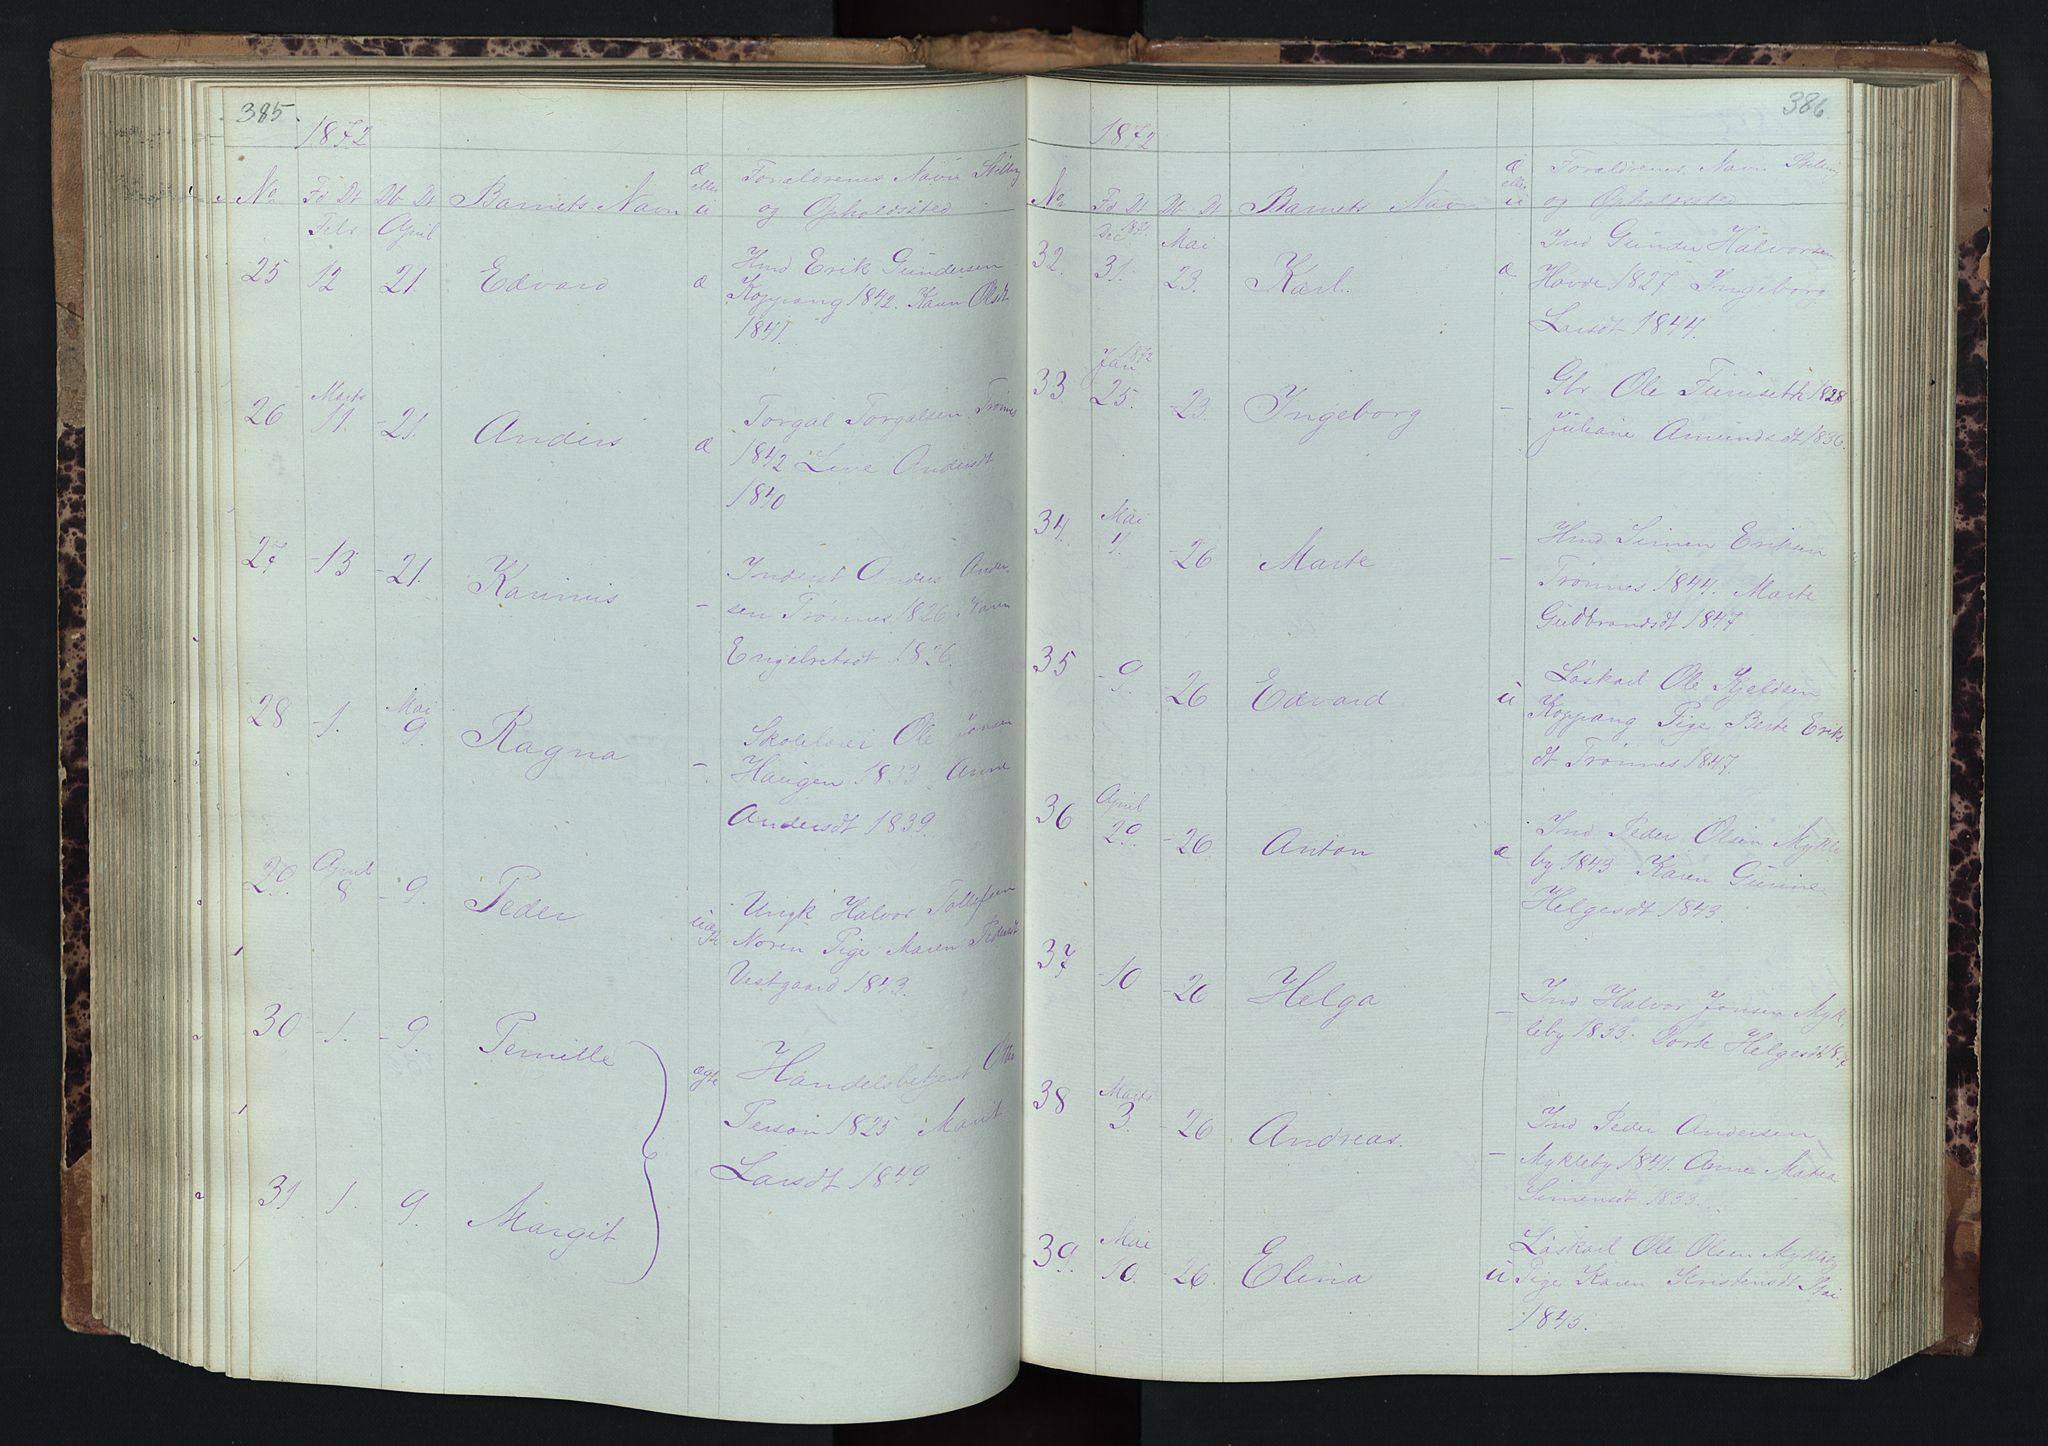 385.
1872
No Fd Dt Db Dt Barnets Navn æ eller u Forældrenes Navn Stilling
og Opholdssted
Febr April
25 12 21 Edvard æ Hmd Erik Gundersen
Koppang 1842. Karen Olsdt
1841.
Marts
26 11. -21. Anders æ Torgal Torgalsen Trønnes
1842 Live Andersdt
1840
27 -13 -21. Karinius - Inderst Anders Ander-
sen Trønnes 1826 Karen
Engebretsdt 1826.
Mai
28 -1. 9. Ragna - Skolelærer Ole Jonsen
Haugen 1833 Anne
Andersdt 1839.
April
29. 8 -9. Peder uægte Ungk Halvor Tollefsen
Noren Pige Maren Pedersdt
Vestgaard 1843.
30 -1. -9. Pernille ægte Handelsbetjent Otto
Person 1825 Marit
Larsdt 1849
31 1. 9. Margit
386.
1872
No Fd Dt Db Dt Barnets Navn æ eller u Forældrenes Navn Stilling
og Opholdssted
Dec 1871. Mai
32. 31. 23. Karl. æ Ind Gunder Halvorsen
Havde 1827 Ingeborg
Larsdt 1844.
Jan 1872
33. 25. -23. Ingeborg - Gbr Ole Furuseth 1828
Juliane Amundsdt 1836.
Mai
34. 1. -26 Marte - Hmd Simen Eriksen
Trønnes 1844. Marte
Gudbrandsdt 1847
35 -9. -26 Edvard u Løskarl Ole Kjeldsen
Koppang Pige Berte Eriks
dt Trønnes 1847.
April
36 29. -26 Anton æ Ind Peder Olsen Mykle
by 1843 Karen Gunine
Helgesdt 1843.
37 -10 -26 Helga - Ind Halvor Jonsen Myk
leby 1833. Dorte Helgesdt
Marts
38 3. -26 Andreas. - Ind Peder Andersen
Mykleby 1841. Anne Matea
Simensdt 1833.
Mai
39. 10. -26. Elina u Løskarl Ole Olsen Mykleby
Pige Karen Kristensdt Stai
1845.